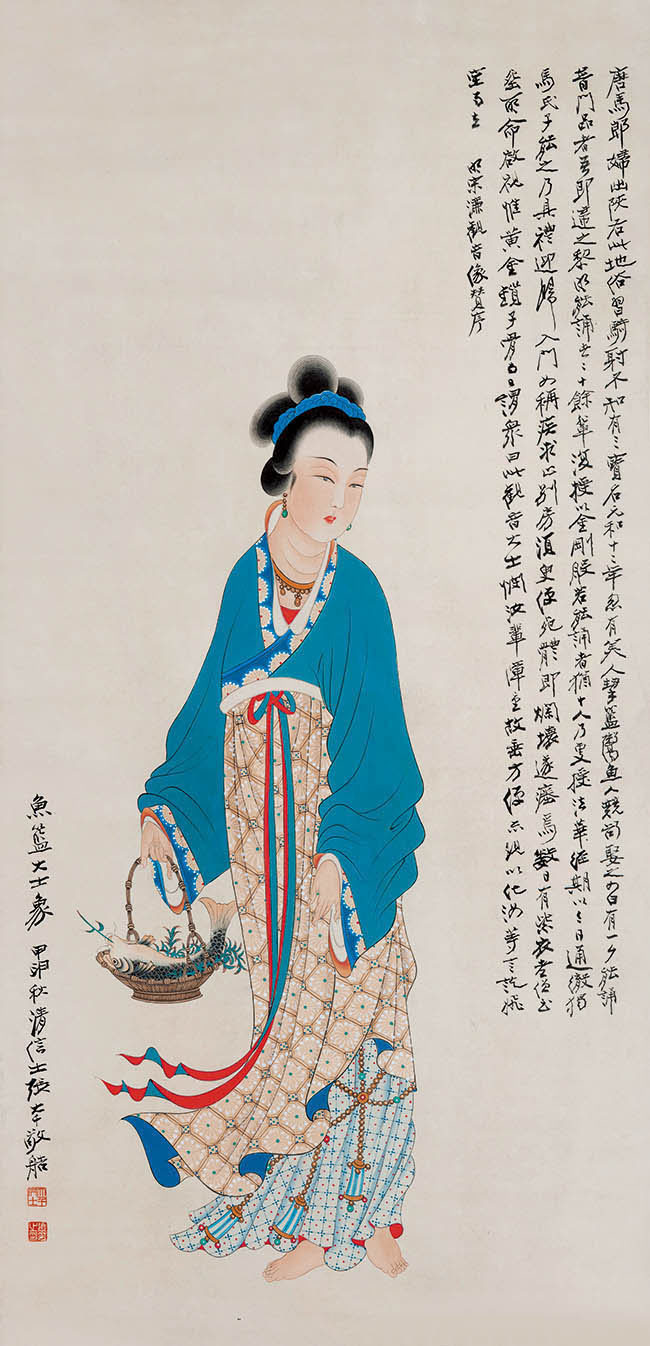 唐馬郎婦出陝右此地俗習騎射不知有三寶名元和十二年忽有美人挈籃鬻魚人競欲娶之女曰有一夕能誦
普門品者吾即適之黎明能誦者二十餘輩復授以金剛般若能誦者猶十人乃更授法華經期以三日通徹獨
馬氏子能之乃具禮迎歸入門女稱疾求止別房須臾便死體即爛壞遂瘞焉數日有紫衣老僧至
瘞所命啟視惟黃金鎖子骨而已謂眾曰此觀音大士憫汝輩障重故垂方便示現以化汝等言訖飛
空而去 明宋濂觀音像贊序
魚籃大士象 甲申秋清信士張大千敬造